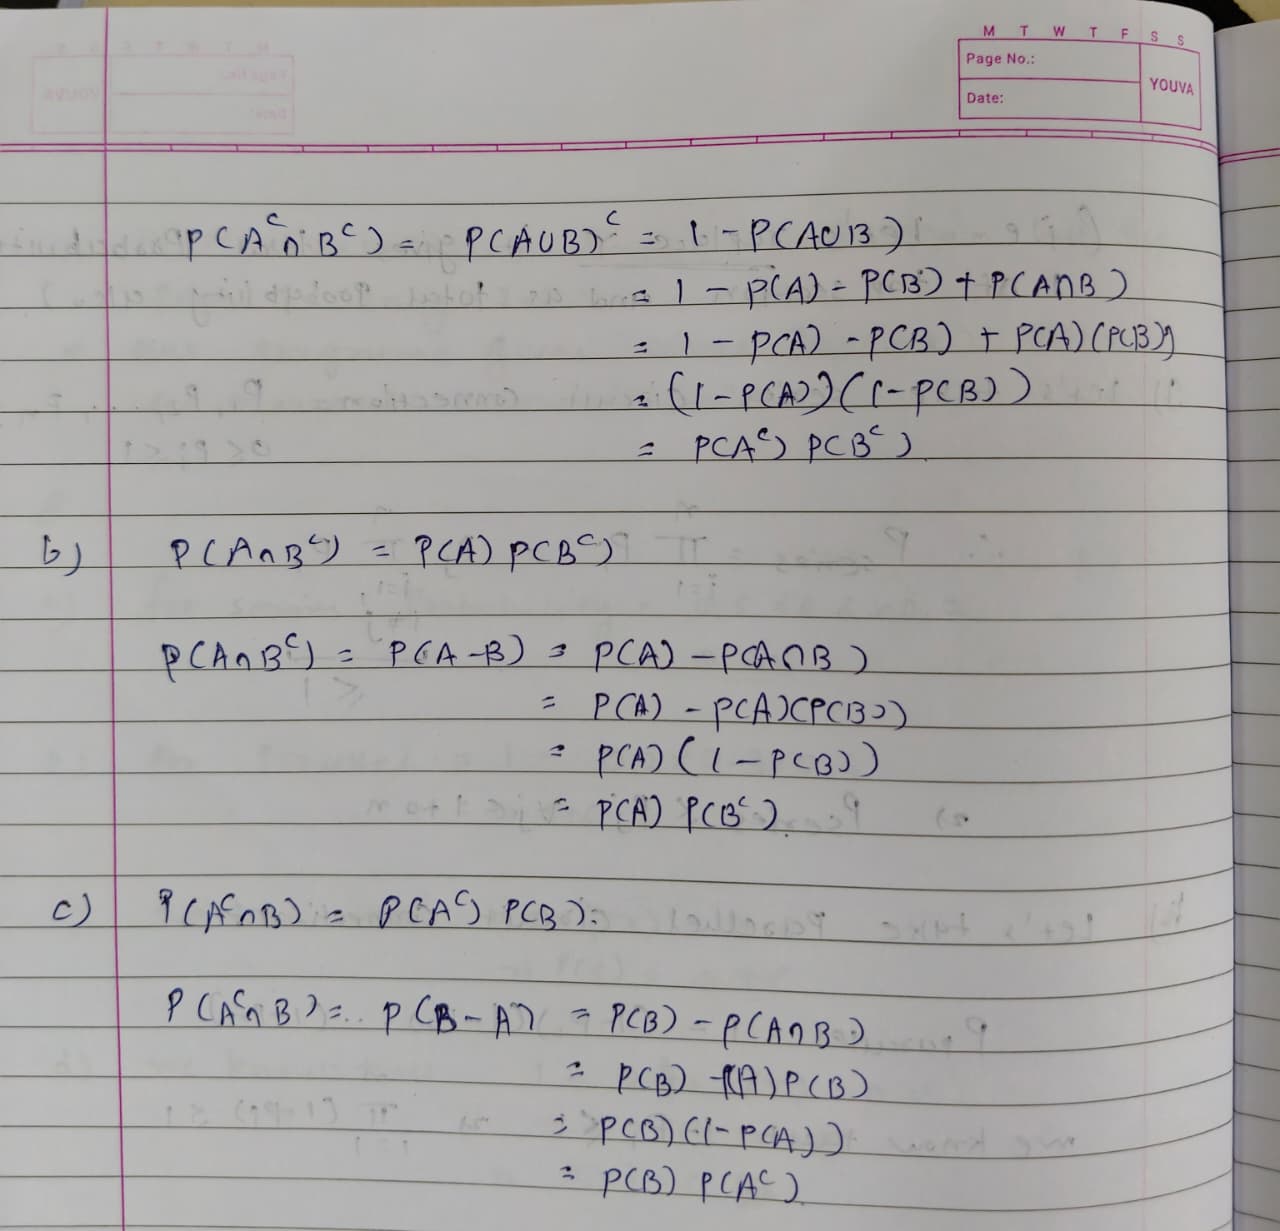 M T W T F S S
Page No.:
YOUVA
Date:
P(A^c ∩ B^c) = P(A∪B)^c = 1 - P(A∪B)
= 1 - P(A) - P(B) + P(A∩B)
= 1 - P(A) - P(B) + P(A)(P(B))
= (1-P(A))(1-P(B))
= P(A^c) P(B^c)
b) P(A∩B^c) = P(A) P(B^c)
P(A∩B^c) = P(A-B) = P(A) - P(A∩B)
= P(A) - P(A)(P(B))
= P(A) (1-P(B))
= P(A) P(B^c).
c) P(A^c∩B) = P(A^c) P(B).
P(A^c∩B) = P(B-A) = P(B) - P(A∩B)
= P(B) - P(A)P(B)
= P(B)(1-P(A))
= P(B) P(A^c)